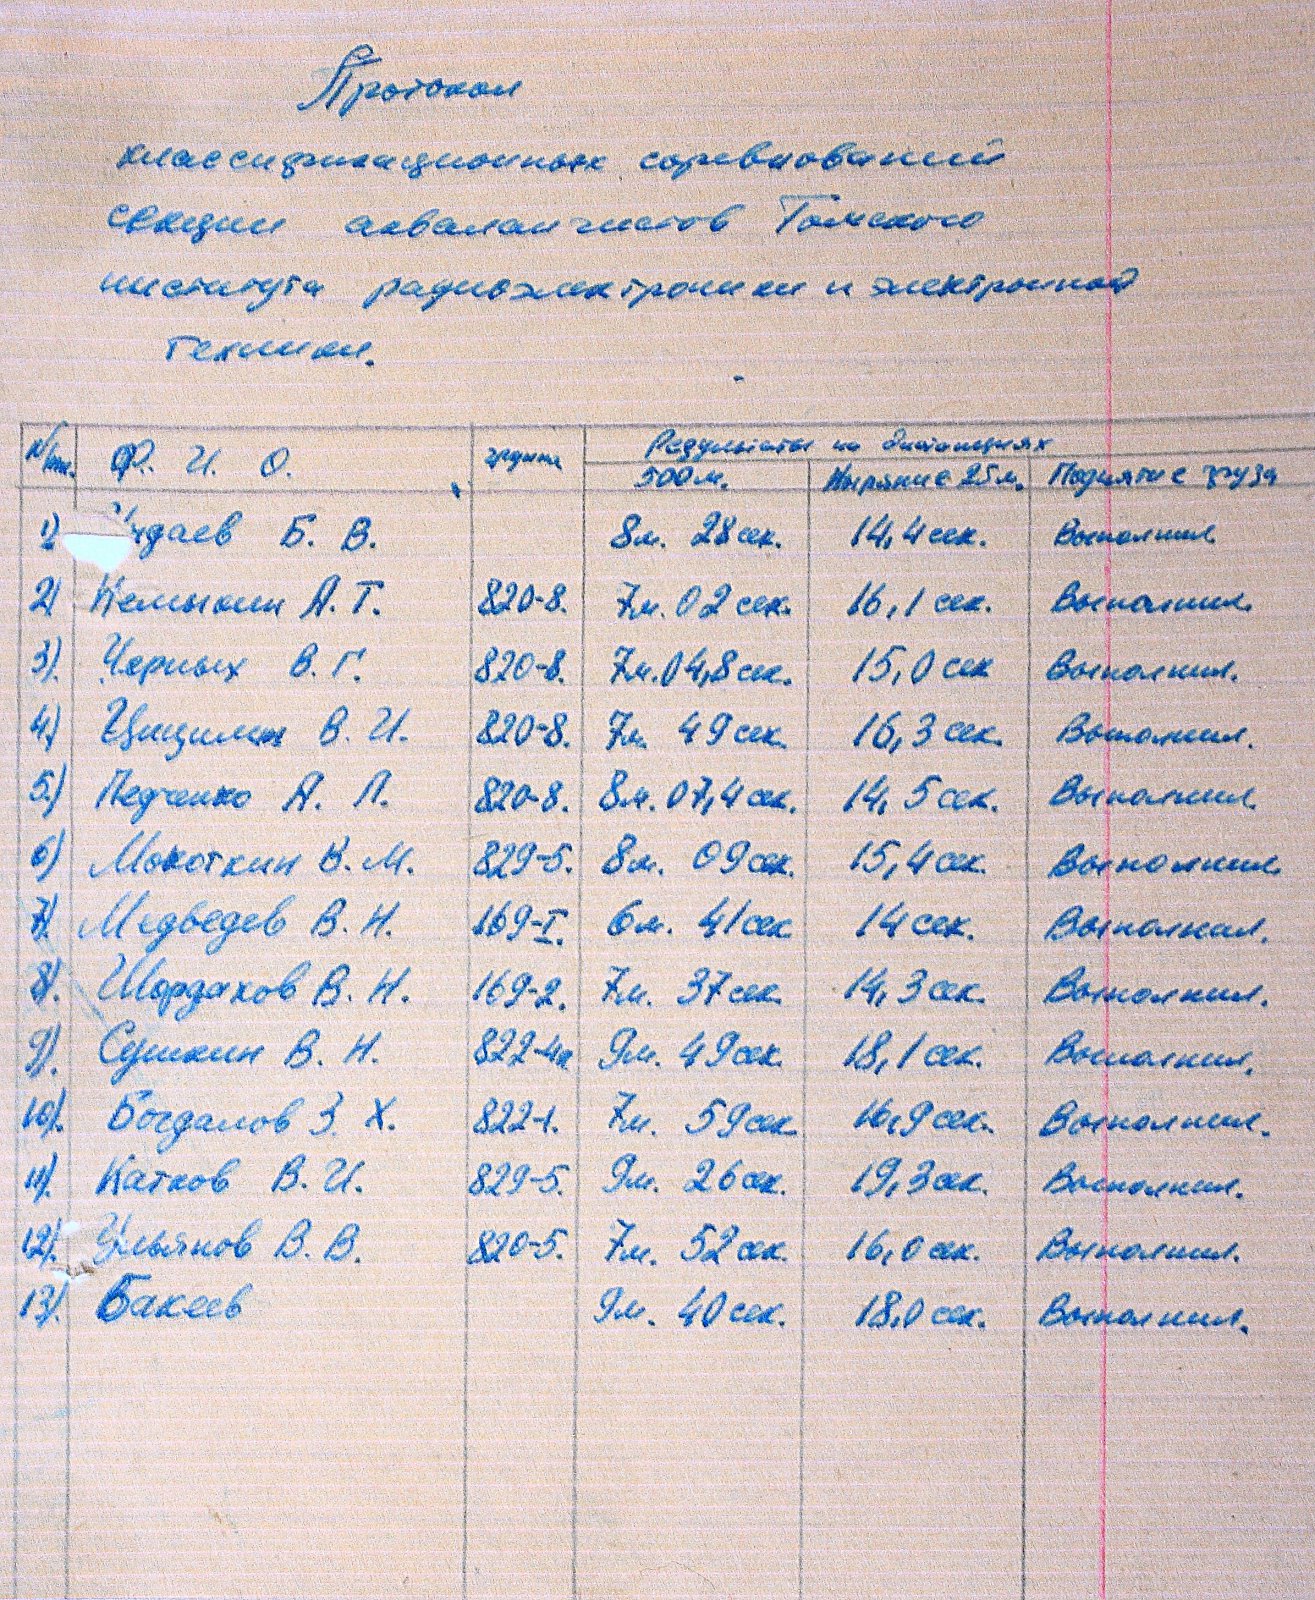 Протокол
классификационных соревнований
секции аквалангистов Томского
института радиоэлектроники и электронной
техники.
№ пп. Ф. И. О. группа Результаты на дистанциях
500 м. Ныряние 25 м. Поднятие груза
1) Б. В. 8м. 28 сек. 14,4 сек. Выполнил.
2) Кемыкин А. Г. 820-8. 7м. 02 сек. 16,1 сек. Выполнил.
3). Черных В. Г. 820-8. 7м. 04,8 сек. 15,0 сек Выполнил.
4.) В. И. 820-8. 7м. 49 сек. 16,3 сек. Выполнил.
5.) Педченко А. Л. 820-8. 8м. 07,4 сек. 14,5 сек. Выполнил.
6) Мокоткин В. М. 829-5. 8м. 09 сек. 15,4 сек. Выполнил.
7). Медведев В. Н. 169-I. 6м. 41 сек 14 сек. Выполнил.
8). Шордаков В. Н. 169-2. 7м. 37 сек. 14,3 сек. Выполнил.
9). Сушкин В. Н. 822-4а 9м. 49 сек. 18,1 сек. Выполнил.
10). Богдалов З. Х. 822-1. 7м. 59 сек 16,9 сек. Выполнил.
11). Катков В. И. 829-5. 9м. 26 сек. 19,3 сек. Выполнил.
12). Ульянов В. В. 820-5. 7м. 52 сек. 16,0 сек. Выполнил.
13). Бакеев 9м. 40 сек. 18,0 сек. Выполнил.